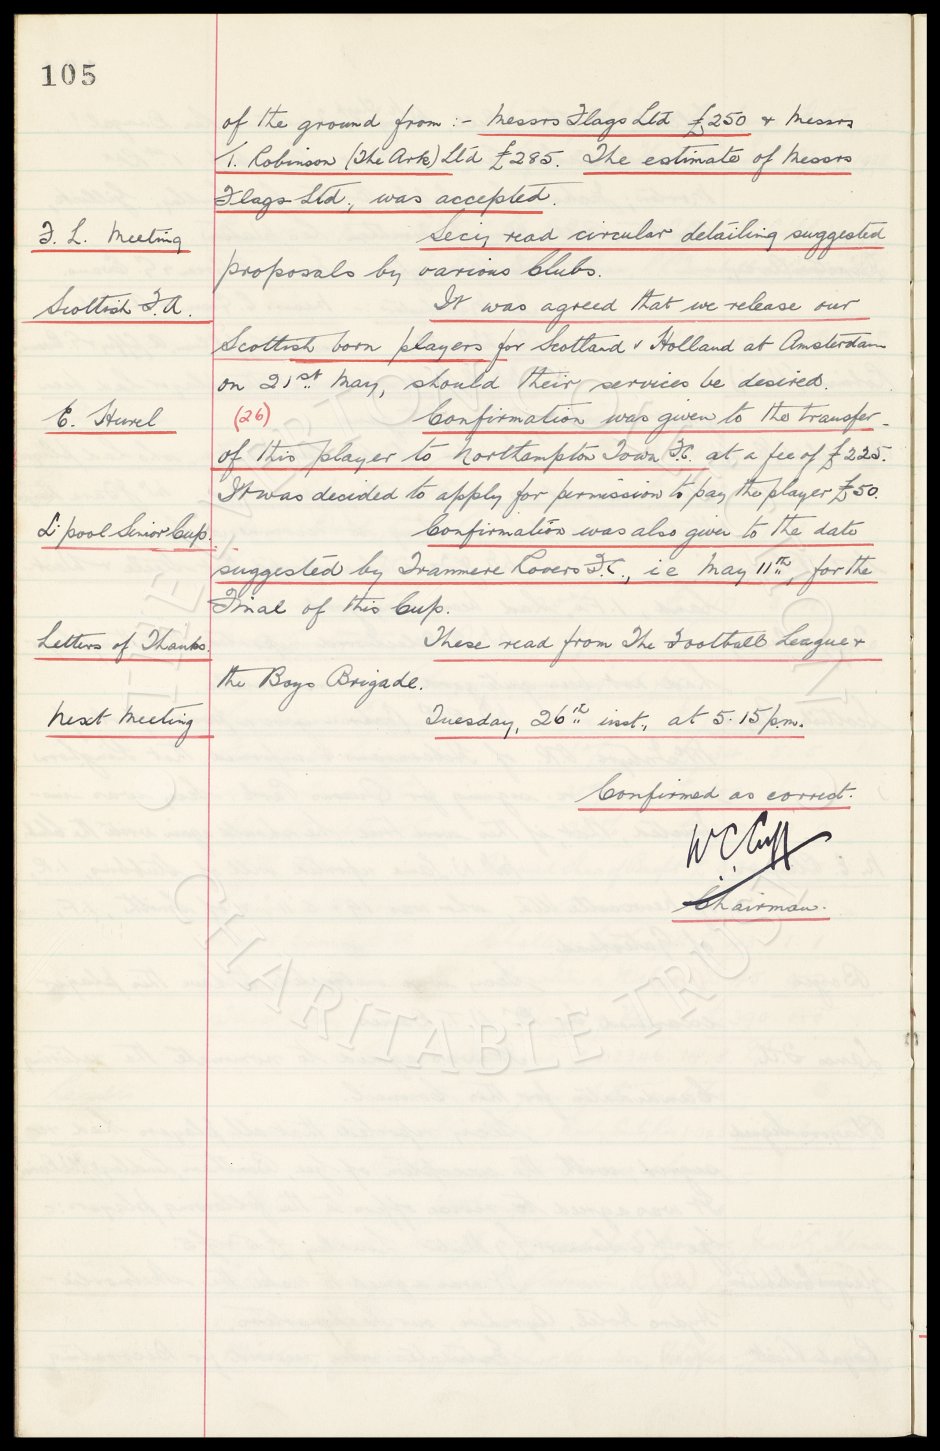 105
of the ground from :- Messrs Flags Ltd £250 & Messrs
T. Robinson (The Ark) Ltd £285. The estimate of Messrs
Flags Ltd., was accepted.
F. L. Meeting Secy read circular detailing suggested
proposals by various Clubs.
Scottish F.A. It was agreed that we release our
Scottish born players for Scotland v Holland at Amsterdam
on 21st May, should their services be desired.
E. Hurel (26) Confirmation was given to the transfer
of this player to Northampton Town F.C. at a fee of £225.
It was decided to apply for permission to pay the player £50.
L'pool Senior Cup. Confirmation was also given to the date
suggested by Tranmere Rovers F.C., i e May 11th, for the
Final of this Cup.
Letters of Thanks. These read from The Football League &
the Boys Brigade.
Next Meeting Tuesday, 26th inst., at 5.15 p.m.
Confirmed as correct.
W C Cuff
Chairman.
THE EVERTON COLLECTION
CHARITABLE TRUST